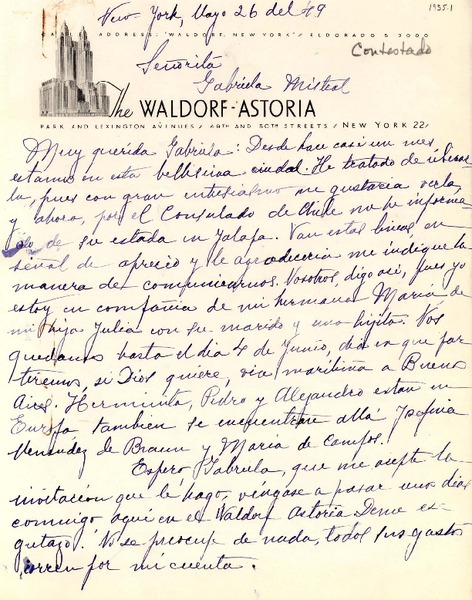 1935.1
New-York, Mayo 26 del 49
CABLE ADDRESS: "WALDORF, NEW YORK" ELDORADO 5-3000
Contestado
Señorita
Gabriela Mistral
The WALDORF-ASTORIA
PARK AND LEXINGTON AVENUES / 49TH AND 50TH STREETS / NEW YORK 22
Muy querida Gabriela: Desde hace casi un mes
estamos en esta bellísima ciudad. He tratado de ubicar
la, pues con gran entusiasmo me gustaria verla,
y ahora, por el Consulado de Chile me he informa
do de su estada en Jalapa. Van estas lineas en
señal de aprecio y le agradeceria me indique la
manera de comunicarnos. Nosotros, digo asi, pues yo
estoy en compañia de mi hermana Maria de
mi hija Julia con su marido y una hijita. Nos
quedamos hasta el dia 4 de Junio, dia en que par
tiremos, si Dios quiere, via maritima a Buenos
Aires. Herminita, Pedro y Alejandro estan en
Europa tambien se encuentran allá Josefina
Menendez de Braun y Maria de Campos.
Espero Gabriela, que me acepte la
invitación que le hago, véngase a pasar unos dias
conmigo aquí en el Waldorf Astoria Deme es-
te gustazo. No se preocupe de nada, todos sus gastos
corren por mi cuenta.